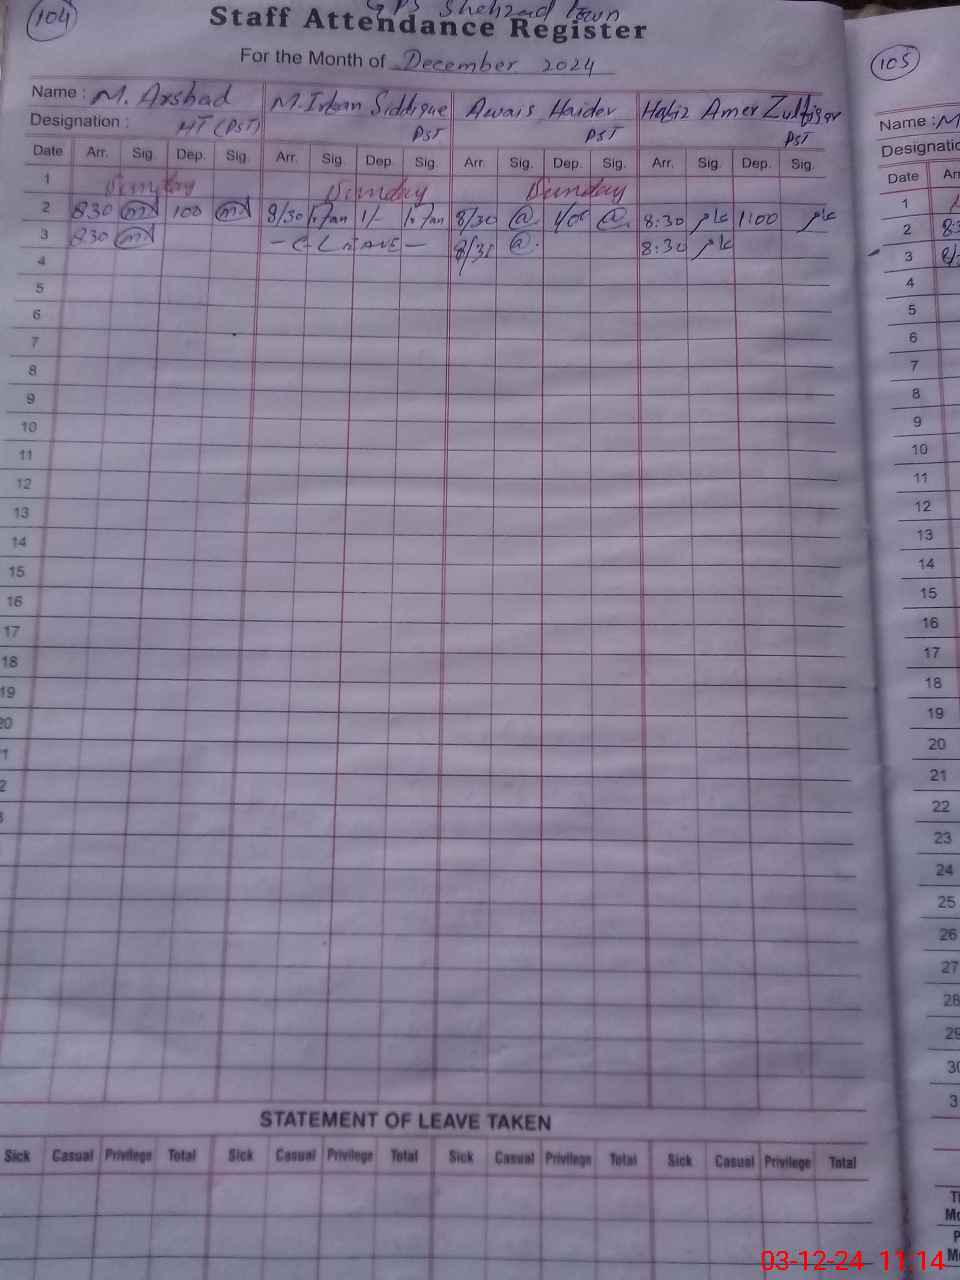 104
GPS Shehzad Town
Staff Attendance Register
For the Month of December 2024
Name : M. Arshad M. Irfan Siddique Awais Haider Hafiz Amer Zulfiqar
Designation : HT (PST) PST PST PST
Date Arr. Sig. Dep. Sig. Arr. Sig. Dep. Sig. Arr. Sig. Dep. Sig. Arr. Sig. Dep. Sig.
1 Sunday Sunday Sunday
2 8:30 100 8/30 Irfan 1/- Irfan 8/30 @ @ 8:30 عامر 1:00 عامر
3 8:30 - C-LEAVE - 8/30 @ 8:30 عامر
4
5
6
7
8
9
10
11
12
13
14
15
16
17
18
19
20
STATEMENT OF LEAVE TAKEN
Sick Casual Privilege Total Sick Casual Privilege Total Sick Casual Privilege Total Sick Casual Privilege Total
105
Name : M
Date
1
2
3
4
5
6
7
8
9
10
11
12
13
14
15
16
17
18
19
20
21
22
23
24
25
26
27
28
29
30
03-12-24 11:14